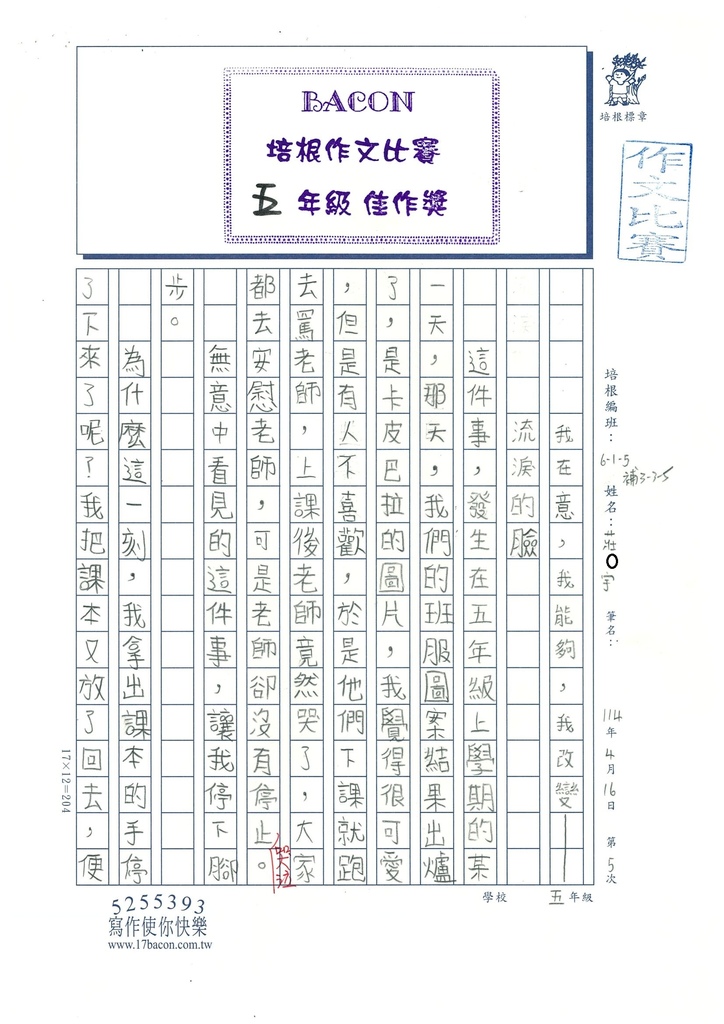 BACON
培根作文比賽
五 年級 佳作獎
培根標章
作文比賽
培根編班：6-1-5
補3-7-5
姓名：莊O宇
筆名：
114年4月16日 第5次
我在意，我能夠，我改變──
流淚的臉
這件事，發生在五年級上學期的某
一天，那天，我們的班服圖案結果出爐
了，是卡皮巴拉的圖片，我覺得很可愛
，但是有人不喜歡，於是他們下課就跑
去罵老師，上課後老師竟然哭了，大家
都去安慰老師，可是老師卻沒有停止。
哭泣
無意中看見的這件事，讓我停下腳
步。
為什麼這一刻，我拿出課本的手停
了下來了呢？我把課本又放了回去，便
17×12=204
學校 五年級
5255393
寫作使你快樂
www.17bacon.com.tw